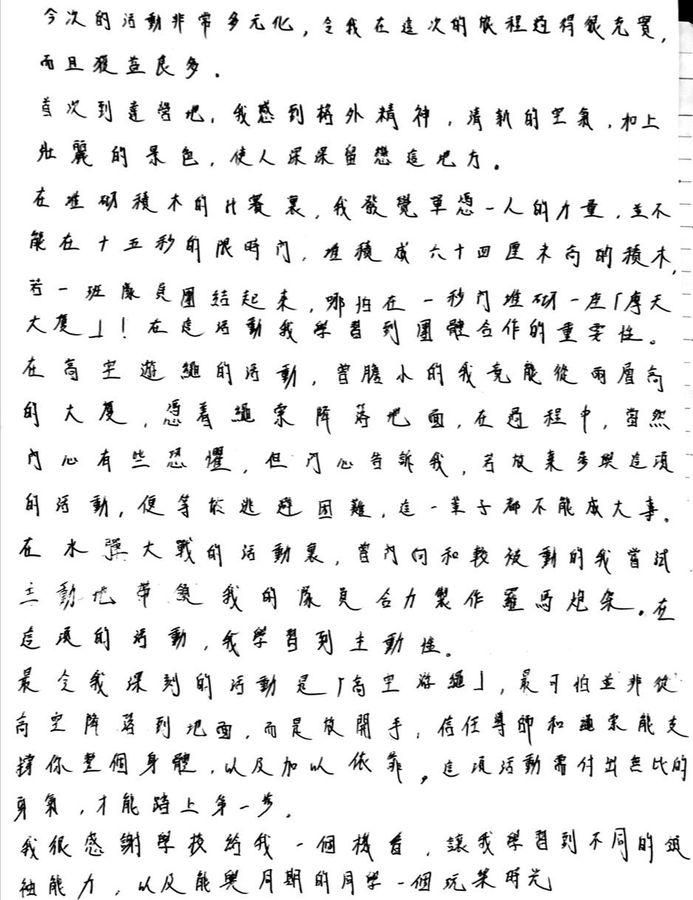 今次的活動非常多元化，令我在這次的旅程過得很充實，
而且獲益良多。
首次到達營地，我感到格外精神，清新的空氣，加上
壯麗的景色，使人深深留戀這地方。
在堆砌積木的比賽裏，我發覺單憑一人的力量，並不
能在十五秒的限時內，堆積成六十四厘米高的積木，
若一班隊員團結起來，哪怕在一秒內堆砌一座「摩天
大廈」！在這活動我學習到團體合作的重要性。
在高空遊繩的活動，曾膽小的我竟能從兩層高
的大廈，憑着繩索降落地面，在過程中，當然
內心有些恐懼，但內心告訴我，若放棄參與這項
的活動，便等於逃避困難，這一輩子都不能成大事。
在水彈大戰的活動裏，曾內向和較被動的我嘗試
主動地帶領我的隊員合力製作羅馬炮架。在
這項的活動，我學習到主動性。
最令我深刻的活動是「高空游繩」，最可怕並非從
高空降落到地面，而是放開手，信任導師和繩索能支
撐你整個身體，以及加以依靠，這項活動需付出無比的
勇氣，才能踏上第一步。
我很感謝學校給我一個機會，讓我學習到不同的領
袖能力，以及能與同期的同學一個玩樂時光